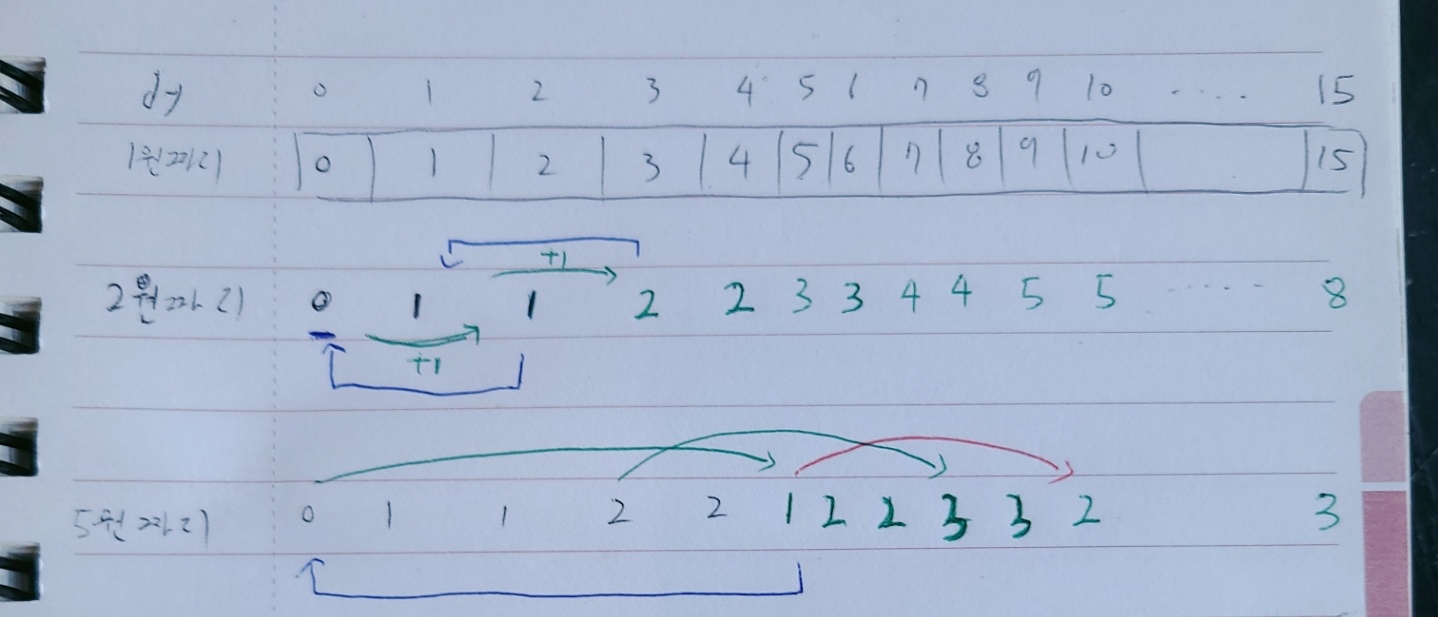 dy 0 1 2 3 4 5 6 7 8 9 10 .... 15
1원짜리 0 1 2 3 4 5 6 7 8 9 10 15
+1
2원짜리 0 1 1 2 2 3 3 4 4 5 5 ...... 8
+1
5원짜리 0 1 1 2 2 1 2 2 3 3 2 3